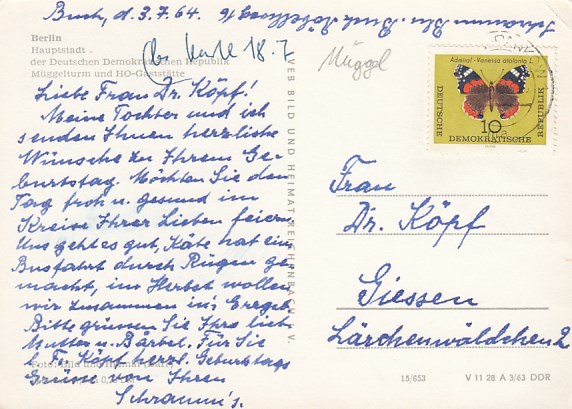 Buch, d. 3.7.64.
Berlin
Hauptstadt
der Deutschen Demokratischen Republik
Müggelturm und HO-Gaststätte
18.7
Müggel
Liebe Frau Dr. Köpf.
Meine Tochter und ich
senden Ihnen herzliche
Wünsche zu Ihrem Ge-
burtstag. Möchten Sie den
Tag froh u. gesund im
Kreise Ihrer Lieben feiern.
Uns geht es gut, Käte hat eine
Busfahrt durch Rügen ge-
macht, im Herbst wollen
wir zusammen in's Erzgeb.
Bitte grüssen Sie Ihre liebe
Mutter u. Bärbel. Für Sie
l. Fr. Köpf herzl. Geburtstags
Grüsse von Ihren
Schramm's.
VEB BILD UND HEIMAT REICHENBACH I. V.
Admiral - Vanessa atalanta
DEUTSCHE
10
DEMOKRATISCHE
REPUBLIK
Frau
Dr. Köpf
Giessen
Lärchenwäldchen 2
15/653 V 11 28 A 3/63 DDR